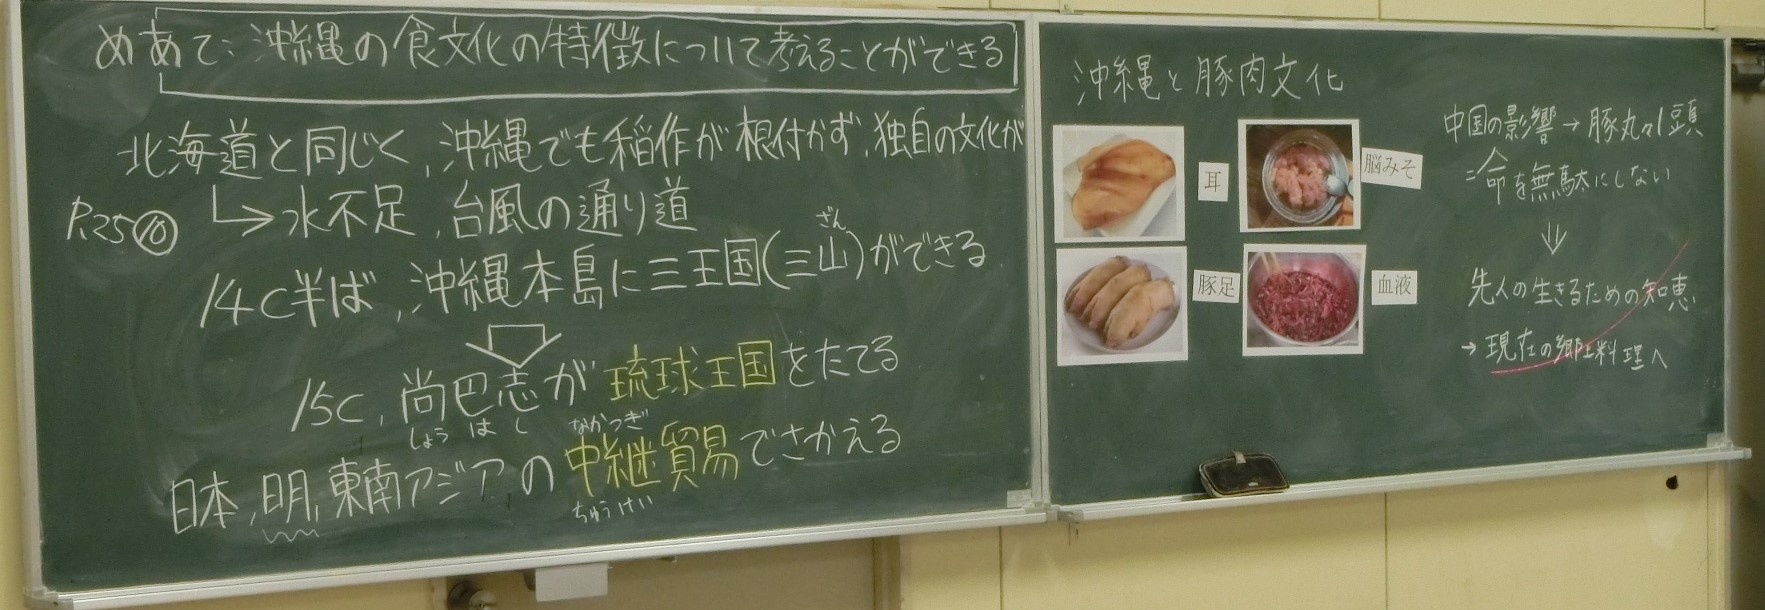 めあて:沖縄の食文化の特徴について考えることができる
北海道と同じく,沖縄でも稲作が根付かず,独自の文化が
P.25⑩
↳水不足,台風の通り道
14C半ば,沖縄本島に三王国(三山)ができる
ざん
15C,尚巴志が琉球王国をたてる
しょう は し
なかつぎ
日本,明,東南アジアの中継貿易でさかえる
ちゅうけい
沖縄と豚肉文化
耳
脳みそ
豚足
血液
中国の影響→豚丸々1頭
=命を無駄にしない
⇓
先人の生きるための知恵
→現在の郷土料理へ